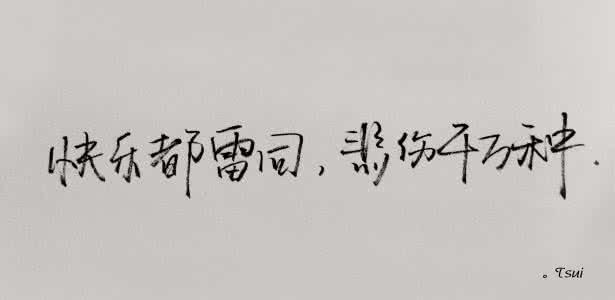 快乐都雷同，悲伤千万种.
。Tsui